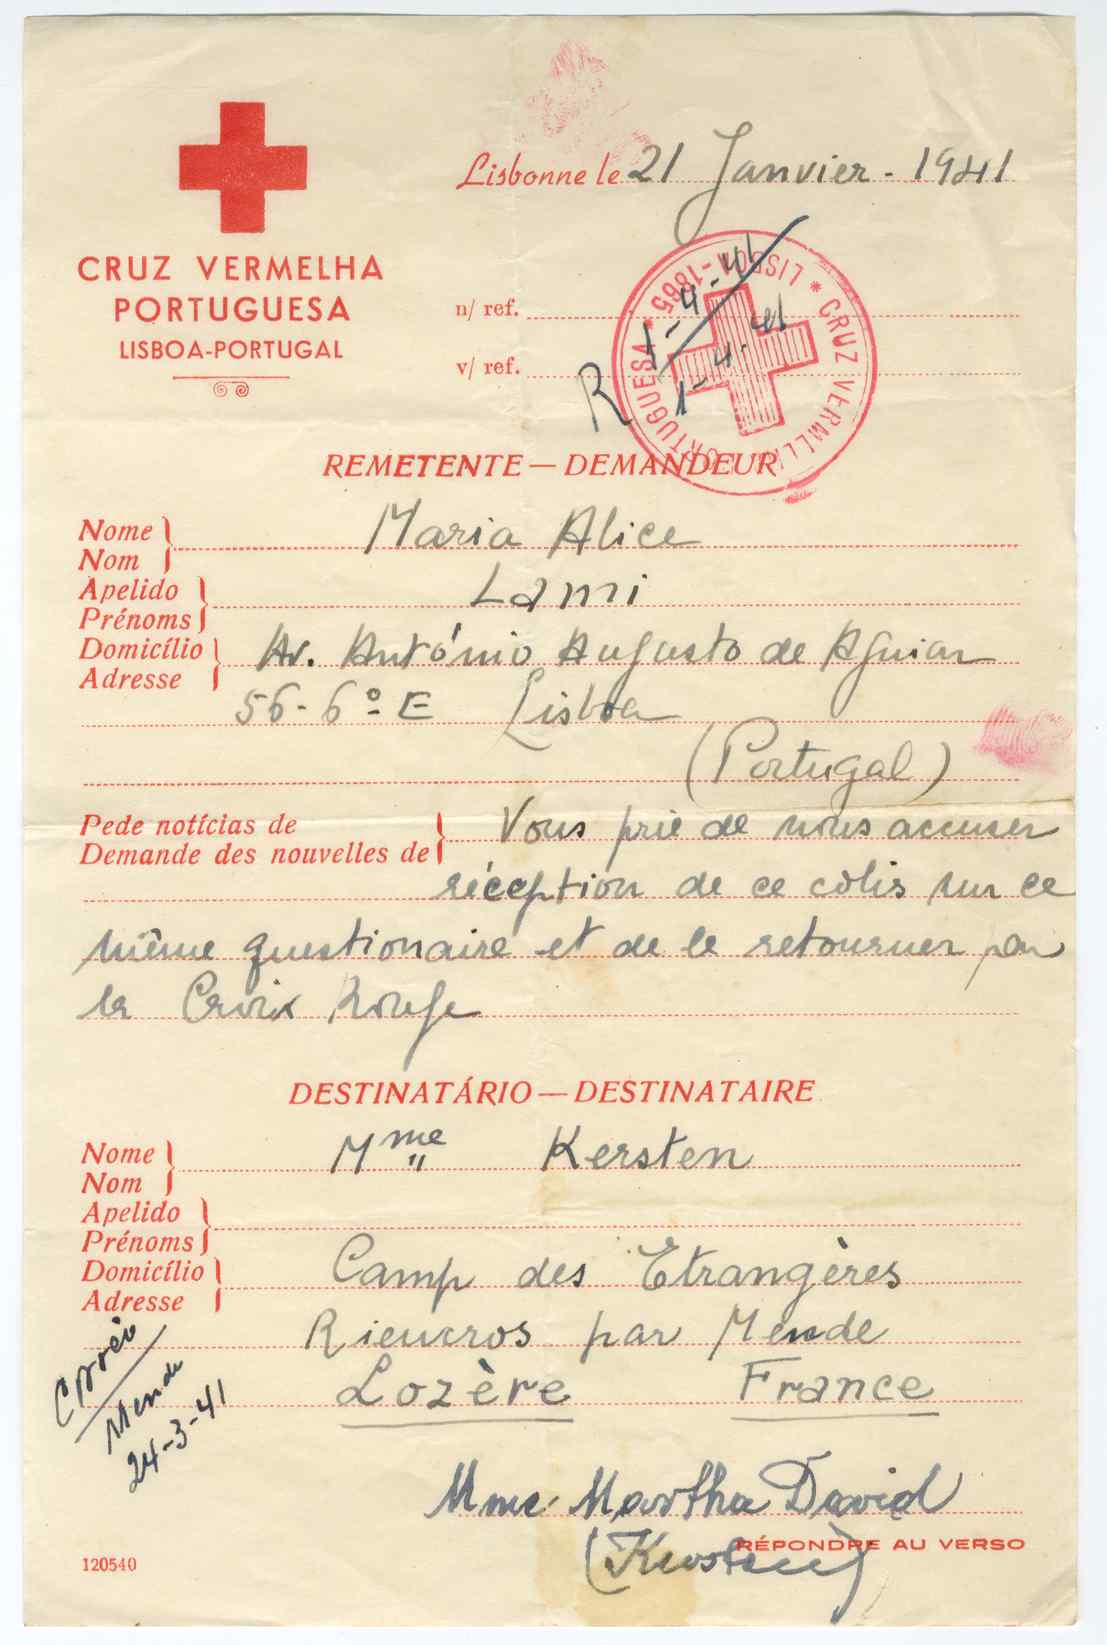 Lisbonne le 21 Janvier - 1941
CRUZ VERMELHA
PORTUGUESA
LISBOA-PORTUGAL
n/ ref.
v/ ref.
CRUZ VERMELHA PORTUGUESA * LISBOA-1865 *
1-4-41
R 1-4-41
REMETENTE — DEMANDEUR
Nome
Nom
Maria Alice
Apelido
Prénoms
Lami
Domicílio
Adresse
Av. António Augusto de Aguiar
56-6º E Lisboa
(Portugal)
Pede notícias de
Demande des nouvelles de
Vous prie de nous accuser
réception de ce colis sur ce
même questionaire et de le retourner par
la Croix Rouge
DESTINATÁRIO — DESTINATAIRE
Nome
Nom
Mme Kersten
Apelido
Prénoms
Domicílio
Adresse
Camp des Etrangères
Rieucros par Mende
Lozère France
Correio
Mende
24-3-41
Mme Martha David
(Kersten)
RÉPONDRE AU VERSO
120540